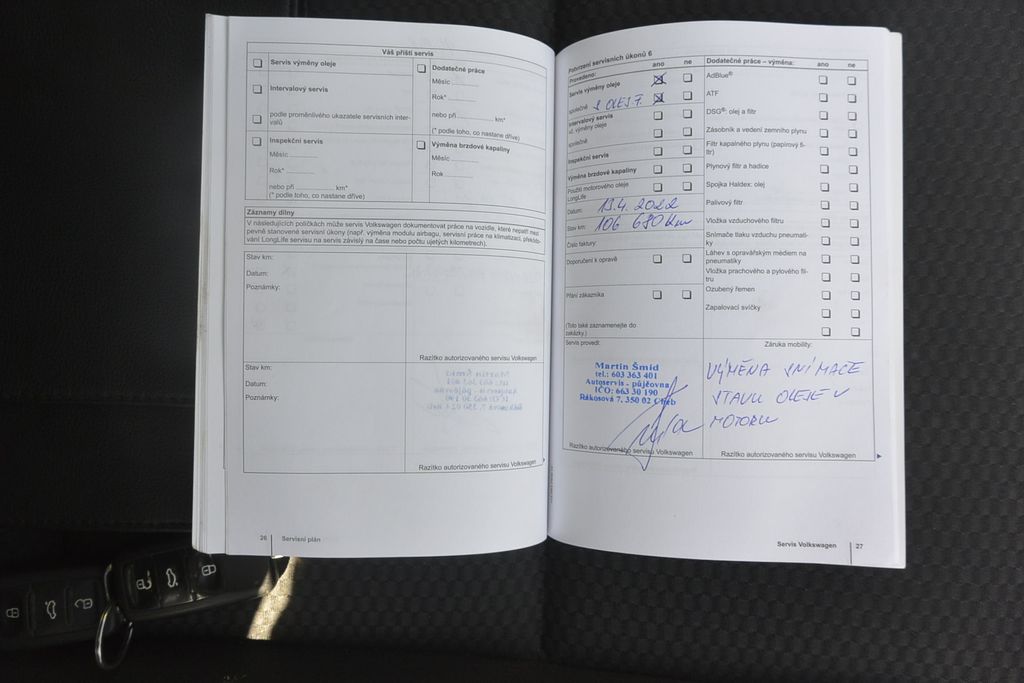 Váš příští servis
Servis výměny oleje
Intervalový servis
podle proměnlivého ukazatele servisních inter-
valů
Inspekční servis
Měsíc
Rok*
nebo při km*
(* podle toho, co nastane dříve)
Dodatečné práce
Měsíc
Rok*
nebo při km*
(* podle toho, co nastane dříve)
Výměna brzdové kapaliny
Měsíc
Rok
Záznamy dílny
V následujících políčkách může servis Volkswagen dokumentovat práce na vozidle, které nepatří mezi
pevně stanovené servisní úkony (např. výměna modulu airbagu, servisní práce na klimatizaci, překódo-
vání LongLife servisu na servis závislý na čase nebo počtu ujetých kilometrech).
Stav km:
Datum:
Poznámky:
Razítko autorizovaného servisu Volkswagen
Stav km:
Datum:
Poznámky:
Razítko autorizovaného servisu Volkswagen
26 Servisní plán
Potvrzení servisních úkonů 6
Provedeno: ano ne
Servis výměny oleje
společně S OLEJ. F.
Intervalový servis
vč. výměny oleje
společně
Inspekční servis
Výměna brzdové kapaliny
Použití motorového oleje
LongLife
Datum: 19.4. 2022
Stav km: 106 680 km
Číslo faktury:
Doporučení k opravě
Přání zákazníka
(Toto také zaznamenejte do
zakázky.)
Servis provedl:
Martin Šmíd
tel.: 603 363 401
Autoservis - půjčovna
IČO: 663 30 190
Rákosová 7, 350 02 Cheb
Razítko autorizovaného servisu Volkswagen
Dodatečné práce – výměna: ano ne
AdBlue®
ATF
DSG®: olej a filtr
Zásobník a vedení zemního plynu
Filtr kapalného plynu (papírový fil-
tr)
Plynový filtr a hadice
Spojka Haldex: olej
Palivový filtr
Vložka vzduchového filtru
Snímače tlaku vzduchu pneumati-
ky
Láhev s opravářským médiem na
pneumatiky
Vložka prachového a pylového fil-
tru
Ozubený řemen
Zapalovací svíčky
Záruka mobility:
VÝMĚNA SNÍMAČE
STAVU OLEJE V
MOTORU
Razítko autorizovaného servisu Volkswagen
Servis Volkswagen 27